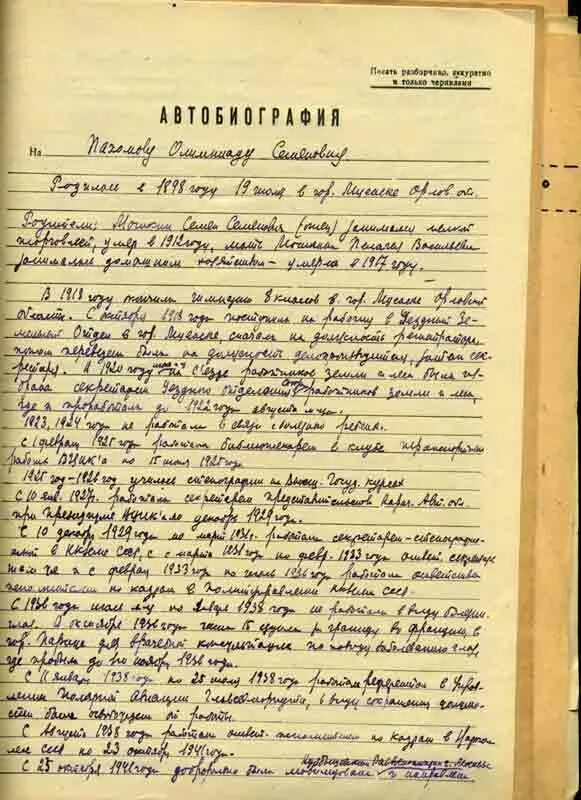 Писать разборчиво, аккуратно
и только чернилами
АВТОБИОГРАФИЯ
На Пахомову Олимпиаду Семеновну
Родилась в 1898 году 19 июля в гор. Мценске Орлов. об.
Родители: Мошкин Семен Семенович (отец) занимался мелкой
торговлей, умер в 1912 году, мать Мошкина Пелагея Васильевна
занималась домашним хозяйством - умерла в 1917 году.
В 1918 году кончила гимназию 8 классов в гор. Мценске Орловской
области. С октября 1918 года поступила на работу в Уездный Зе-
мельный Отдел в гор. Мценске, сначала на должность регистратора
потом переведена была на должность делопроизводителя, затем сек-
ретаря. В 1920 году на С'езде работников земли и леса была из-
брана секретарем Уездного отделения Союза работников земли и леса,
где и проработала до 1922 года августа м-ца.
1923, 1924 год не работала в связи с болезнью ребенка.
С 1 февраля 1925 года работала библиотекарем в клубе транспортной
работы ВЦИК'а по 15 июля 1925 года.
1925 год - 1926 год училась стенографии на Высш. Госуд. курсах
С 10 янв. 1927г. работала секретарем представительства Авт. об.
при президиуме ВЦИК'а по декабрь 1929 года.
С 10 декабря 1929 года по март 1931г. работала секретарем-стенографи-
сткой в Нквоене СССР, с марта 1931 года по февр. 1933 года ответ. секретарем
и с февраля 1933 по июль 1936 года работала ответствен.
исполнителем по кадрам в Политуправлении СССР.
С 1936 года июля м-ца по Января 1938 года не работала в виду болезни
глаз. В октябре 1936 года ездила за границу во Францию в
гор. Париж для врачебной консультации по поводу заболевания глаз,
где пробыла до ноября 1936 года.
С 11 января 1938 года по 25 июля 1938 года работала референтом в Управ-
лении Полярной Авиации Главсевморпути, в виду сокращения должно-
сти была освобождена от работы.
С Августа 1938 года работала ответ. исполнителем по кадрам в Нарко-
мате СССР по 23 октября 1941 года.
С 25 октября 1941 года добровольно была мобилизована и направлена